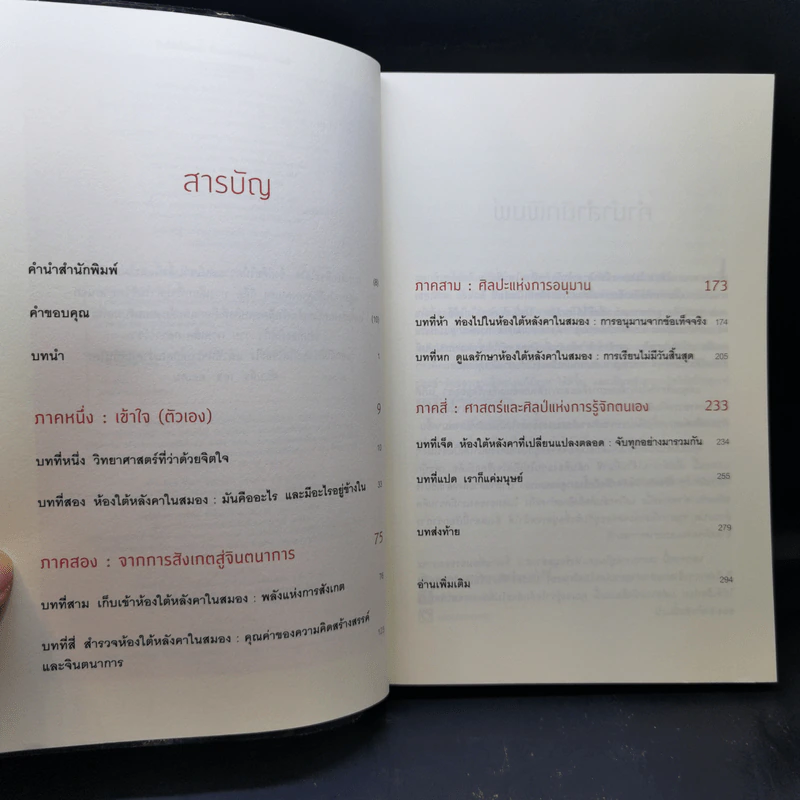 สารบัญ
คำนำสำนักพิมพ์ (8)
คำขอบคุณ (10)
บทนำ 1
ภาคหนึ่ง : เข้าใจ (ตัวเอง) 9
บทที่หนึ่ง วิทยาศาสตร์ที่ว่าด้วยจิตใจ
บทที่สอง ห้องใต้หลังคาในสมอง : มันคืออะไร และมีอะไรอยู่ข้างใน
ภาคสอง : จากการสังเกตสู่จินตนาการ 75
บทที่สาม เก็บเข้าห้องใต้หลังคาในสมอง : พลังแห่งการสังเกต
บทที่สี่ สำรวจห้องใต้หลังคาในสมอง : คุณค่าของความคิดสร้างสรรค์
และจินตนาการ
ภาคสาม : ศิลปะแห่งการอนุมาน 173
บทที่ห้า ท่องไปในห้องใต้หลังคาในสมอง : การอนุมานจากข้อเท็จจริง 174
บทที่หก ดูแลรักษาห้องใต้หลังคาในสมอง : การเรียนไม่มีวันสิ้นสุด 205
ภาคสี่ : ศาสตร์และศิลป์แห่งการรู้จักตนเอง 233
บทที่เจ็ด ห้องใต้หลังคาที่เปลี่ยนแปลงตลอด : จับทุกอย่างมารวมกัน 234
บทที่แปด เราก็แค่มนุษย์ 255
บทส่งท้าย 279
อ่านเพิ่มเติม 294